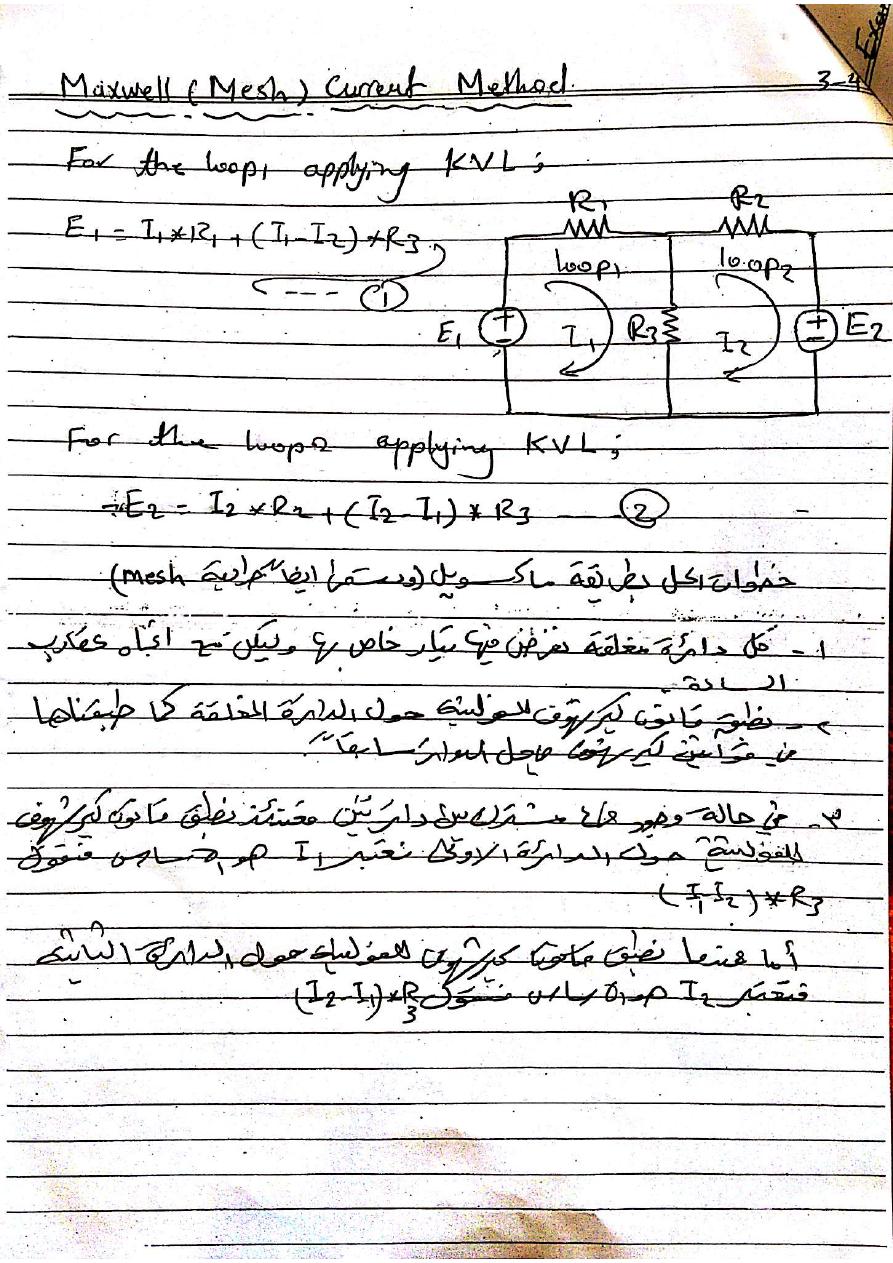 Maxwell (Mesh) Current Method.
3-4
For the loop1 applying KVL;
E1 = I1*R1 + (I1-I2)*R3
--- 1
R1
R2
loop1
loop2
E1
I1
R3
I2
E2
For the loop2 applying KVL;
-E2 = I2*R2 + (I2-I1)*R3 --- 2
خطوات الحل بطريقة ماكسويل (وتسمى ايضاً بطريقة mesh)
١- كل دائرة مغلقة نفرض فيها تيار خاص بها وليكن مع اتجاه عقارب
الساعة.
٢- نطبق قانون كيرشوف للفولتية حول الدائرة المغلقة كما طبقناها
في قوانين كيرشوف حول الدوائر سابقاً.
٣- في حالة وجود مشترك بين دائرتين فعندئذ نطبق قانون كيرشوف
للفولتية حول الدائرة الاولى نعتبر I1 هو الاساس فنقول
(I1-I2)*R3
أما عندما نطبق قانون كيرشوف للفولتية حول الدائرة الثانية
فنعتبر I2 هو الاساس فنقول (I2-I1)*R3